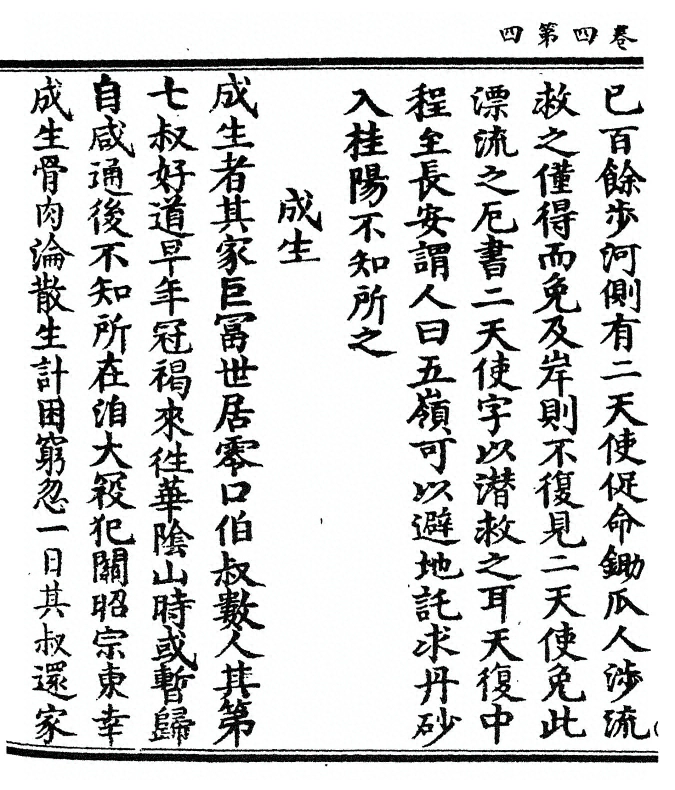 卷四第四
已百餘步河側有二天使促命鋤瓜人涉流
救之僅得而免及岸則不復見二天使免此
漂流之厄書二天使字以潜救之耳天復中
程至長安謂人曰五嶺可以避地託求丹砂
入桂陽不知所之
成生
成生者其家巨冨世居零口伯叔數人其第
七叔好道早年冠褐來徃華陰山時或暫歸
自咸通後不知所在洎大冦犯闗昭宗東幸
成生骨肉淪散生計困窮忽一日其叔還家